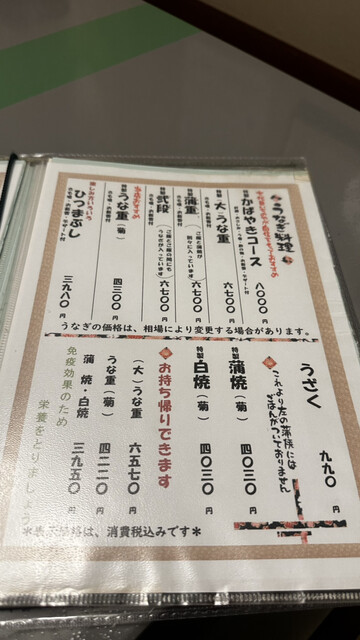 うなぎ料理
特製 かばやきコース
八〇〇〇円
特製 (大)うな重
六七〇〇円
特製 蒲重
(ご飯と蒲焼が
別々に入っています)
六七〇〇円
特製 弐段
(ご飯とご飯の間にも
うなぎが入っています)
六七〇〇円
当店おすすめ
特製 うな重(菊)
四三〇〇円
楽しみ方いろいろ
ひつまぶし
三九八〇円
うなぎの価格は、相場により変更する場合があります。
うざく
九九〇円
これより左の蒲焼には
ごはんがついておりません
特製 蒲焼(菊)
四〇三〇円
特製 白焼(菊)
四〇三〇円
お持ち帰りできます
(大)うな重
六五七〇円
うな重(菊)
四二二〇円
蒲焼・白焼
三九五〇円
免疫効果のため
栄養をとりまし
は、消費税込みです*